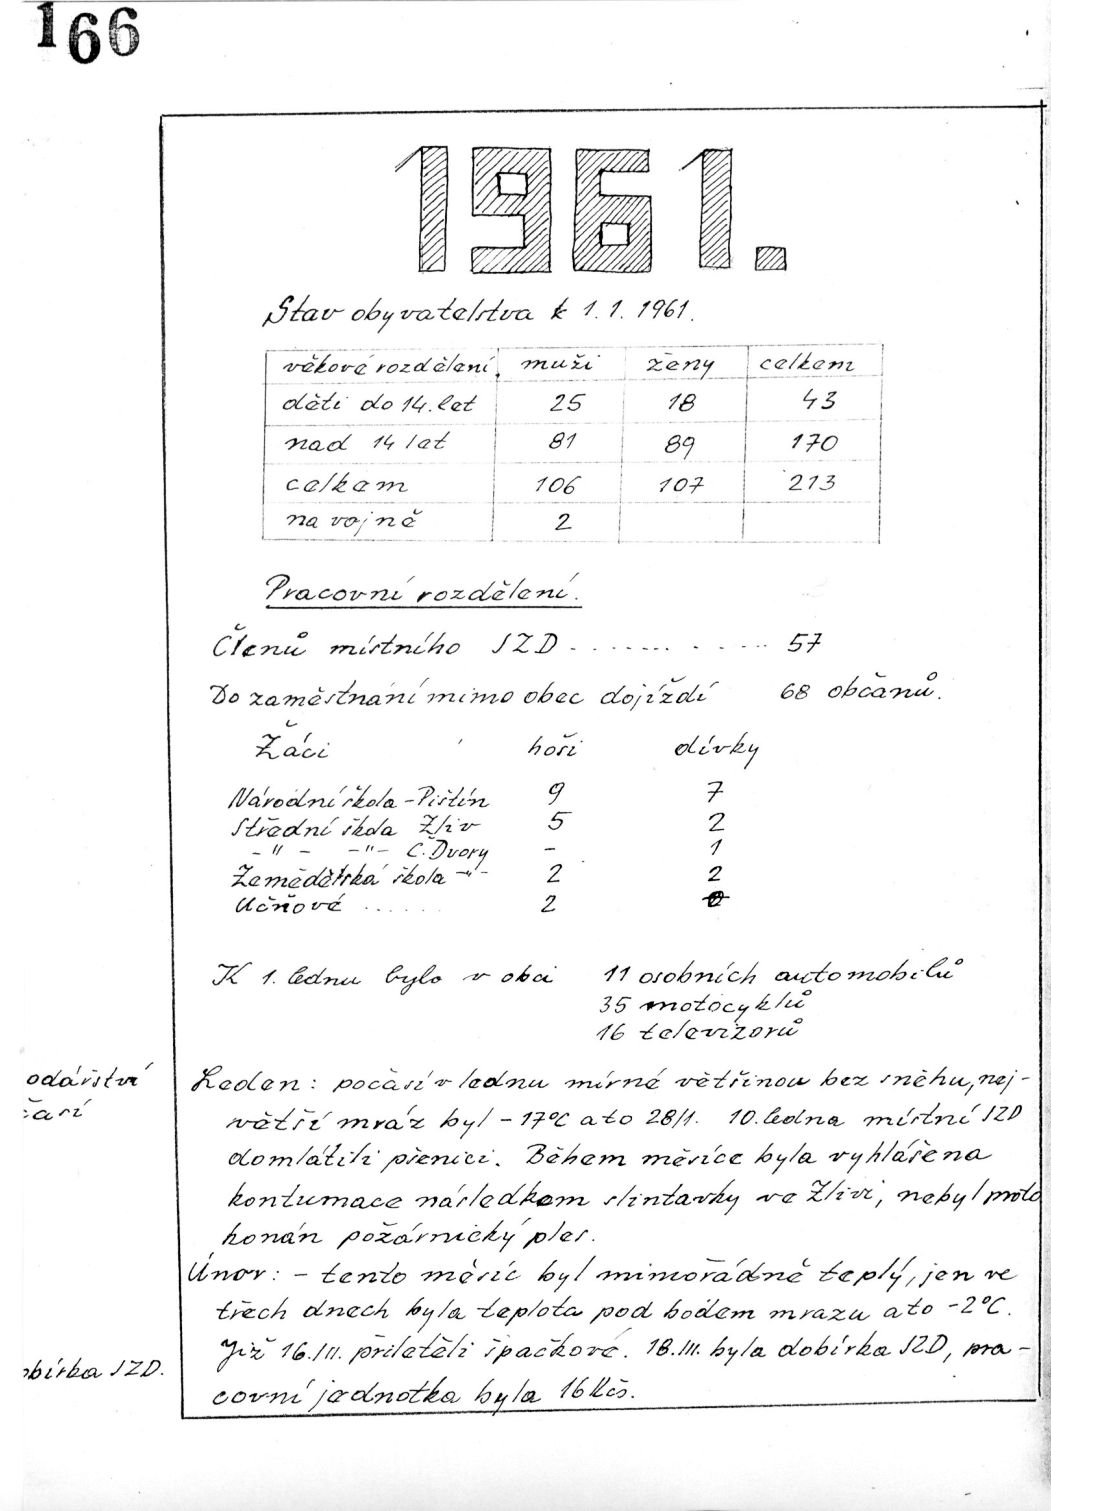 166
1961.
Stav obyvatelstva k 1.1. 1961.
věkové rozdělení, muži ženy celkem
děti do 14. let 25 18 43
nad 14 let 81 89 170
celkem 106 107 213
na vojně 2
Pracovní rozdělení.
Členů místního JZD . . . . . . . . . . . . 57
Do zaměstnání mimo obec dojíždí 68 občanů.
Žáci hoši dívky
Národní škola - Pištín 9 7
Střední škola Zliv 5 2
- " - - " - Č. Dvory - 1
Zemědělská škola - " - 2 2
Učňové . . . . . . 2 0
K 1. lednu bylo v obci 11 osobních automobilů
35 motocyklů
16 televizorů
odářství
časí
Leden: počasí v lednu mírné většinou bez sněhu, nej-
větší mráz byl - 17°C a to 28/1. 10. ledna místní JZD
domlátili pšenici. Během měsíce byla vyhlášena
kontumace následkem slintavky ve Zlivi, nebyl proto
konán požárnický ples.
Únor: - tento měsíc byl mimořádně teplý, jen ve
třech dnech byla teplota pod bodem mrazu a to -2°C.
Již 16./II. přiletěli špačkové. 18./III. byla dobírka JZD, pra-
obírka JZD.
covní jednotka byla 16 Kčs.